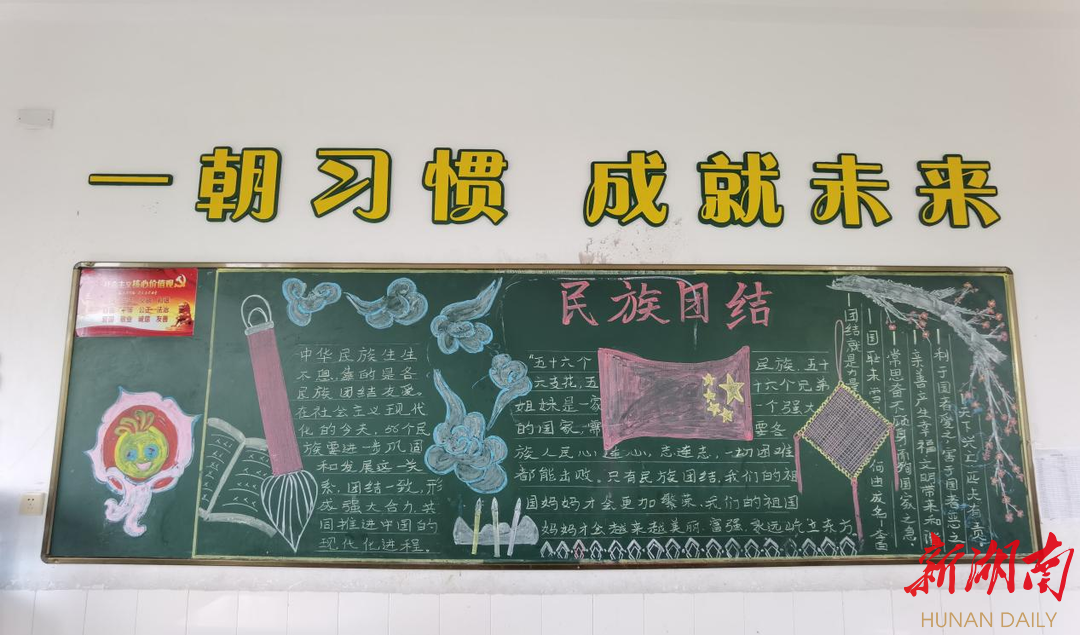 一朝习惯 成就未来
核心价值观
民族团结
中华民族生生
不息靠的是各
民族团结友爱。
在社会主义现代
化的今天,56个民
族要进一步巩固
和发展这一关
系,团结一致,形
成强大合力,共
同推进中国的
现代化进程。
"五十六个 民族,五十
六支花,五 十六个兄弟
姐妹是一家 一个强大
的国家,需 要各
族人民心连心,志连志,一切困难
都能出败。只有民族团结,我们的祖
国妈妈才会更加繁荣、我们的祖国
妈妈才会越来越美丽、富强、永远屹立东方
天下兴亡,匹夫有责
利于国者爱之,害于国者恶之
亲善产生幸福,文明带来和
常思奋不顾身,而殉国家之急
国耻未雪,何由成名
团结就是力量
新湖南
HUNAN DAILY